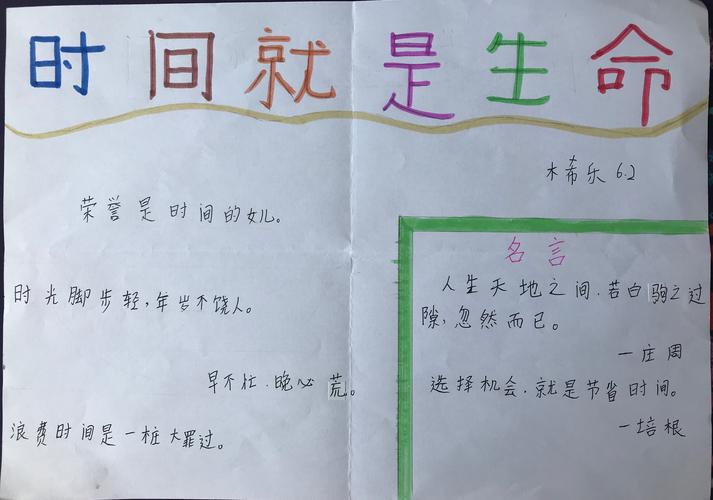 时间就是生命
木希乐 6.2
荣誉是时间的女儿。
时光脚步轻，年岁不饶人。
早不忙．晚心荒。
浪费时间是一桩大罪过。
名言
人生天地之间．若白驹之过
隙，忽然而已。
一庄周
选择机会．就是节省时间。
一培根